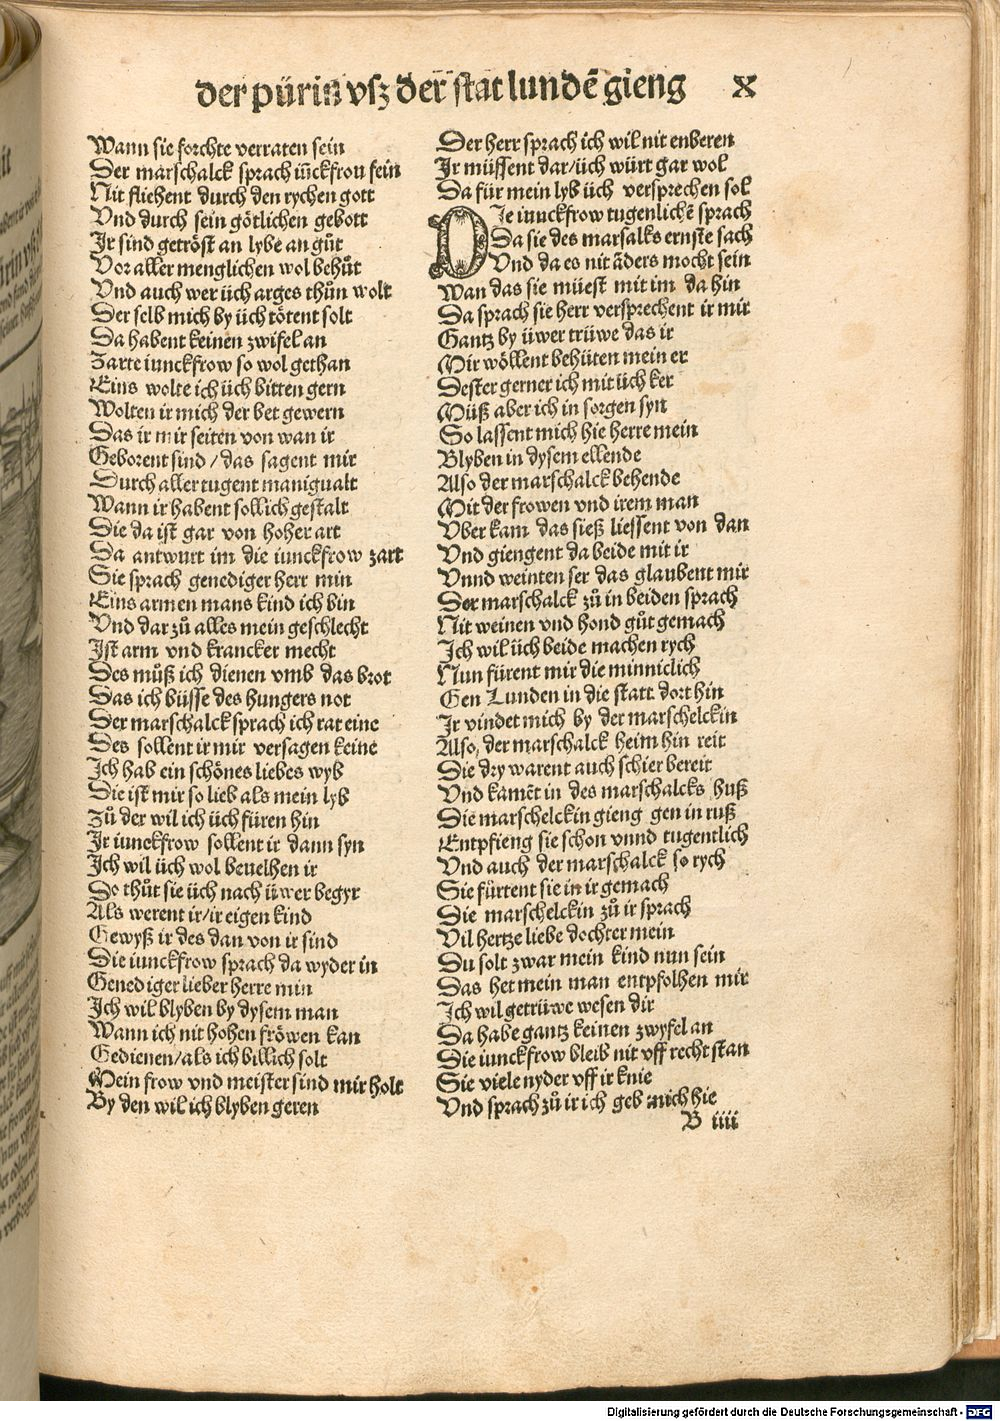 der pürin vsz der stat lundē gieng X
Wann sie forchte verraten sein
Der marschalck sprach iūckfrou fein
Nit fliehent durch den rychen gott
Vnd durch sein götlichen gebott
Ir sind getröst an lybe an gůt
Vor aller menglichen wol behůt
Vnd auch wer üch arges thůn wolt
Der selb mich by üch tötent solt
Da habent keinen zwifel an
Zarte iunckfrow so wol gethan
Eins wolte ich üch bitten gern
Wolten ir mich der bet gewern
Das ir mir seiten von wan ir
Geborent sind / das sagent mir
Durch aller tugent manigualt
Wann ir habent sollich gestalt
Die da ist gar von hoher art
Da antwurt im die iunckfrow zart
Sie sprach genediger herr min
Eins armen mans kind ich bin
Vnd dar zů alles mein geschlecht
Ist arm vnd krancker mecht
Des můß ich dienen vmb das brot
Das ich büsse des hungers not
Der marschalck sprach ich rat eine
Des sollent ir mir versagen keine
Ich hab ein schönes liebes wyb
Die ist mir so lieb als mein lyb
Zů der wil ich üch füren hin
Ir iunckfrow sollent ir dann syn
Ich wil üch wol beuelhen ir
So thůt sie üch nach üwer begyr
Als werent ir/ir eigen kind
Gewyß ir des dan von ir sind
Die iunckfrow sprach da wyder in
Genediger lieber herre min
Ich wil blyben by dysem man
Wann ich nit hohen fröwen kan
Gedienen/als ich billich solt
Mein frow vnd meister sind mir holt
By den wil ich blyben geren
Der herr sprach ich wil nit enberen
Ir müssent dar/üch würt gar wol
Da für mein lyb üch versprechen sol
DIe iunckfrow tugenlichē sprach
Da sie des marsalks ernste sach
Vnd da es nit āders mocht sein
Wan das sie müest mit im da hin
Da sprach sie herr versprechent ir mir
Gantz by üwer trüwe das ir
Mir wöllent behüten mein er
Dester gerner ich mit üch ker
Müß aber ich in sorgen syn
So lassent mich hie herre mein
Blyben in dysem ellende
Also der marschalck behende
Mit der frowen vnd irem man
Vber kam das sieß liessent von dan
Vnd giengent da beide mit ir
Vnnd weinten ser das glaubent mir
Der marschalck zů in beiden sprach
Nit weinen vnd hond gůt gemach
Ich wil üch beide machen rych
Nun fürent mir die minniclich
Gen Lunden in die statt dort hin
Ir vindet mich by der marschelckin
Also, der marschalck heim hin reit
Die dry warent auch schier bereit
Vnd kamēt in des marschalcks huß
Die marschelckin gieng gen in ruß
Entpfieng sie schon vnnd tugentlich
Vnd auch der marschalck so rych
Sie fürtent sie in ir gemach
Die marschelckin zů ir sprach
Vil hertze liebe dochter mein
Du solt zwar mein kind nun sein
Das het mein man entpfolhen mir
Ich wil getrüwe wesen dir
Da habe gantz keinen zwyfel an
Die iunckfrow bleib nit vff recht stan
Sie viele nyder vff ir knie
Vnd sprach zů ir ich geb mich hie
B iiii
Digitalisierung gefördert durch die Deutsche Forschungsgemeinschaft - DFG